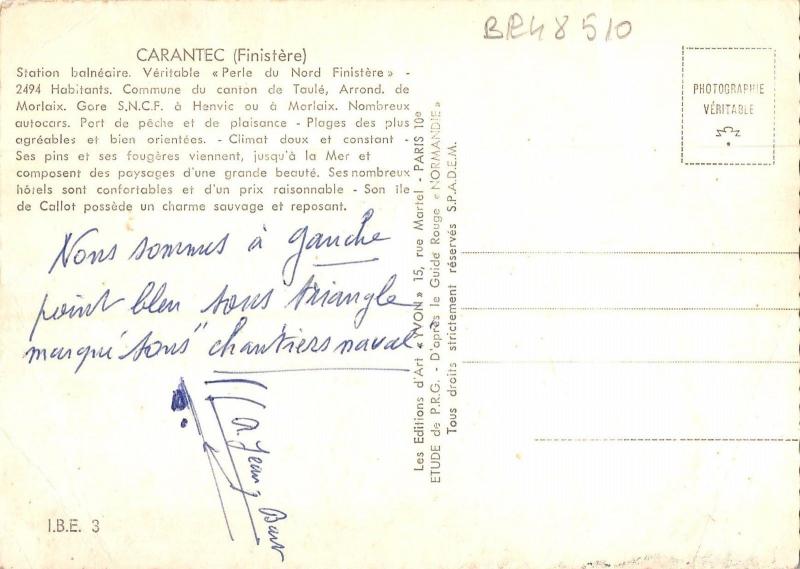 BR48510
CARANTEC (Finistère)
Station balnéaire. Véritable « Perle du Nord Finistère » -
2494 Habitants. Commune du canton de Taulé, Arrond. de
Morlaix. Gare S.N.C.F. à Henvic ou à Morlaix. Nombreux
autocars. Port de pêche et de plaisance - Plages des plus
agréables et bien orientées. - Climat doux et constant -
Ses pins et ses fougères viennent, jusqu'à la Mer et
composent des paysages d'une grande beauté. Ses nombreux
hôtels sont confortables et d'un prix raisonnable - Son île
de Callot possède un charme sauvage et reposant.
Nous sommes à gauche
point bleu sous triangle
marqué "sous" chantiers naval
Jean Bart
I.B.E. 3
Les Editions d'Art « YVON » 15, rue Martel - PARIS 10e
ETUDE de P.R.G. - D'après le Guide Rouge « NORMANDIE »
Tous droits strictement réservés S.P.A.D.E.M.
PHOTOGRAPHIE
VÉRITABLE